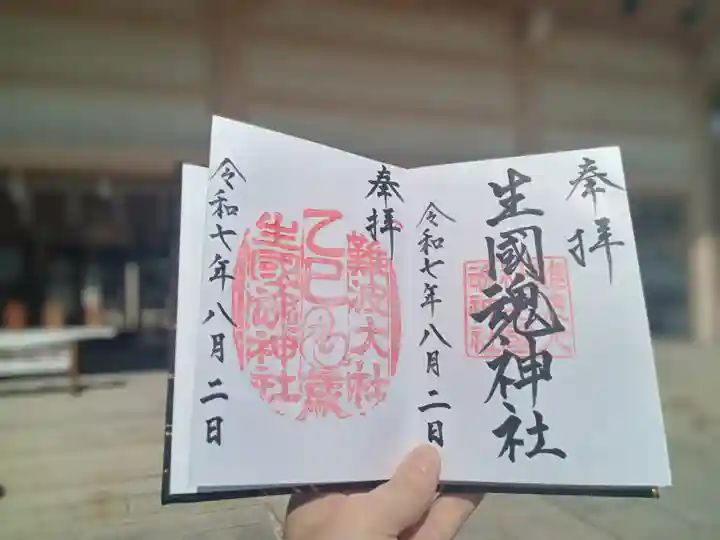 奉拝
生國魂神社
令和七年八月二日
奉拝
難波大社
乙巳歳
生國魂神社
令和七年八月二日